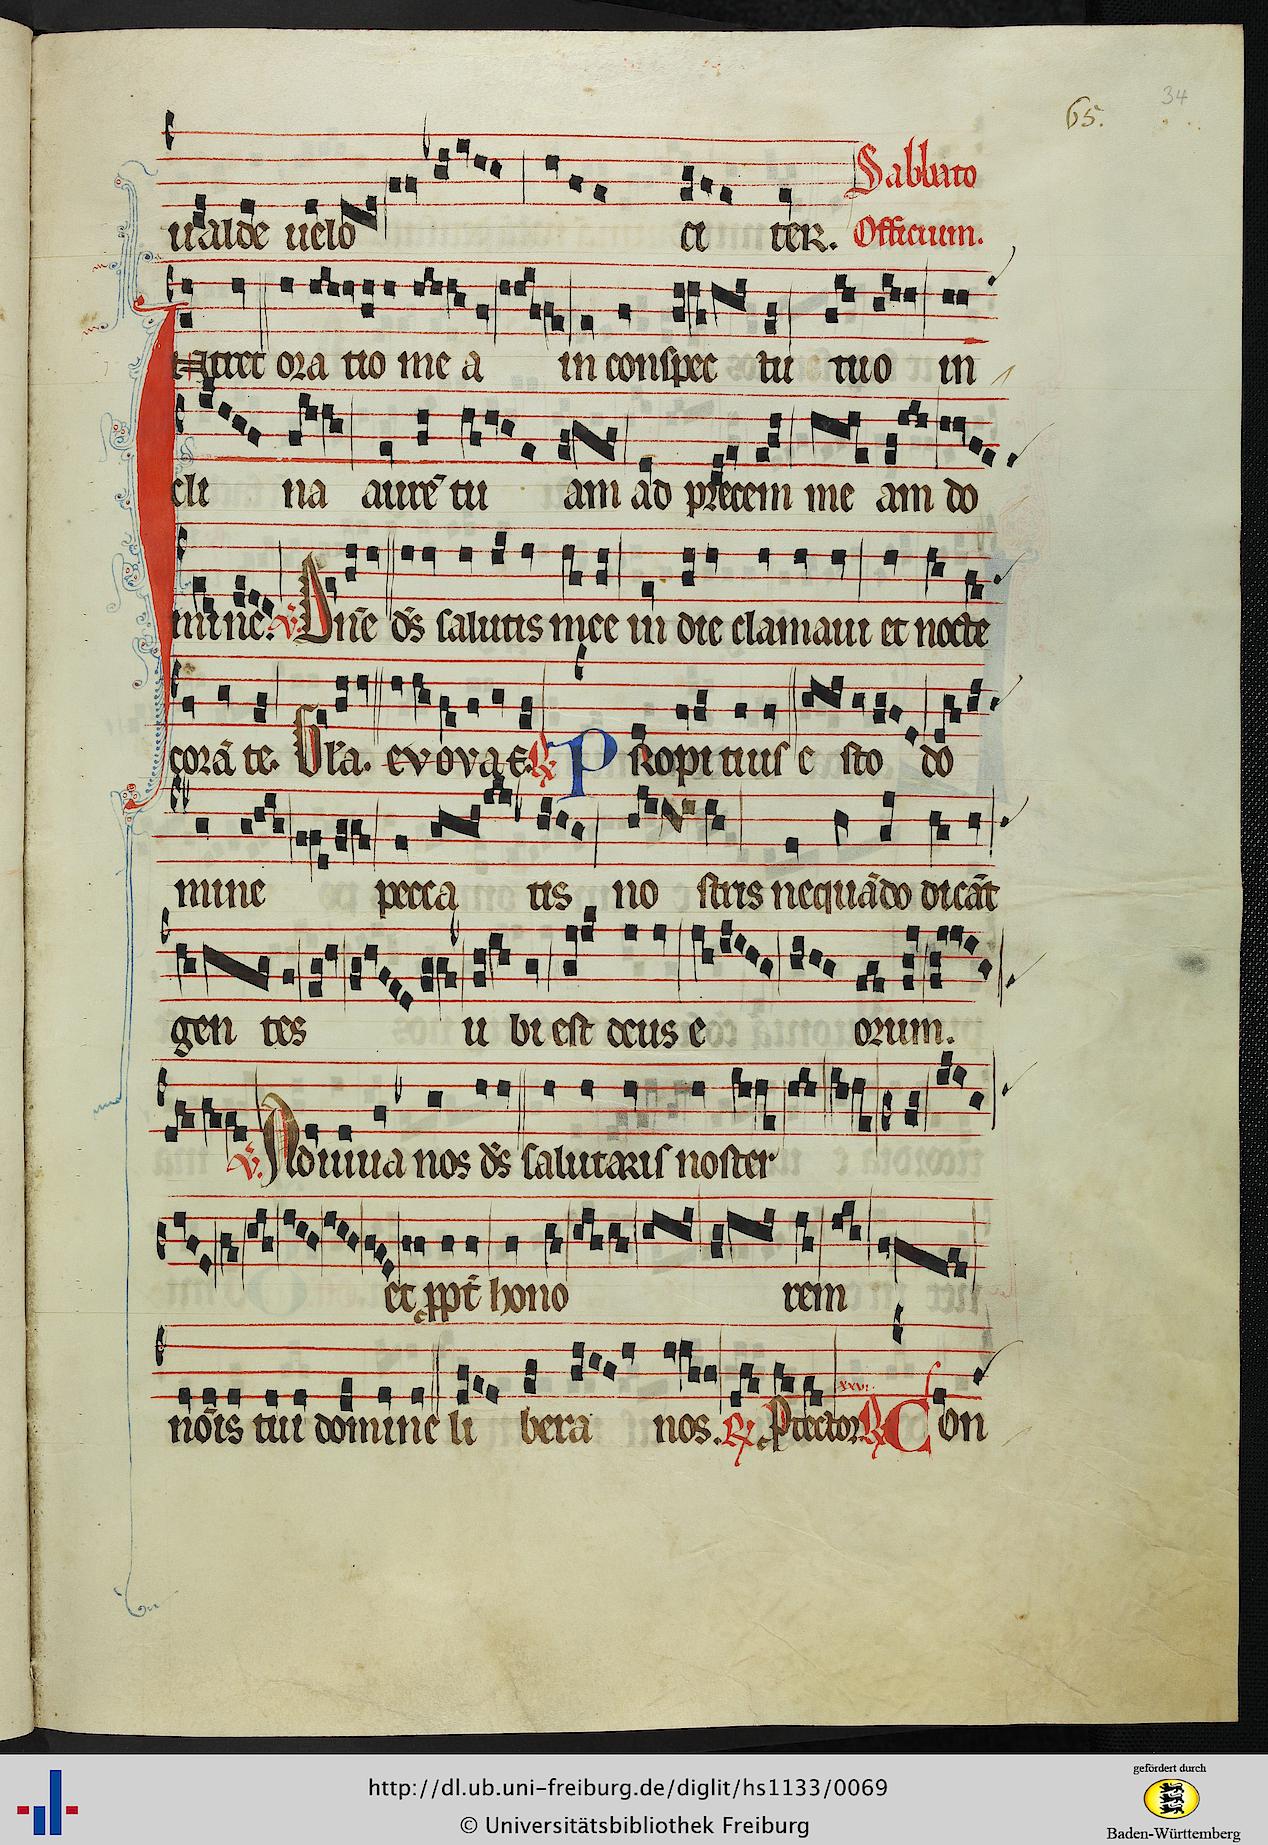 65. 34
ualde uelo ci ter. Sabbato
Officium.
Intret ora tio me a in conspec tu tuo in
cli na aurē tu am ad precem me am do
mine. V. Dn̄e ds̄ salutis mee in die clamaui et nocte
corā te. Gl'a. evovae. R. Propitius e sto do
mine pecca tis no stris nequādo dicāt
gen tes u bi est deus e orum.
V. Adiuua nos ds̄ salutaris noster
et ꝓpt̄ hono rem
nōis tui domine li bera nos. R. Ꝓtector R. Con
http://dl.ub.uni-freiburg.de/diglit/hs1133/0069
© Universitätsbibliothek Freiburg
gefördert durch
Baden-Württemberg